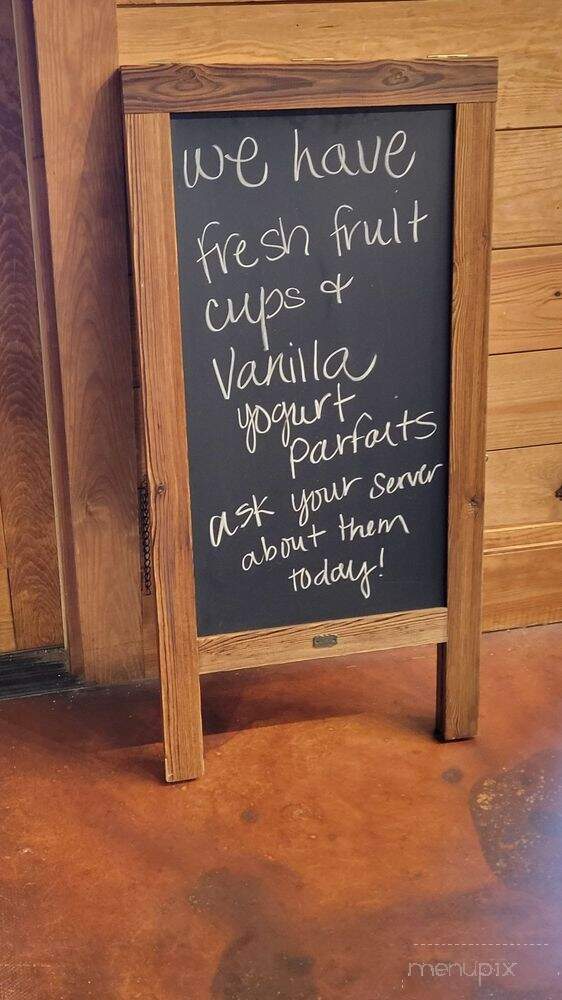 we have
fresh fruit
cups &
Vanilla
yogurt
parfaits
ask your server
about them
today!
menupix